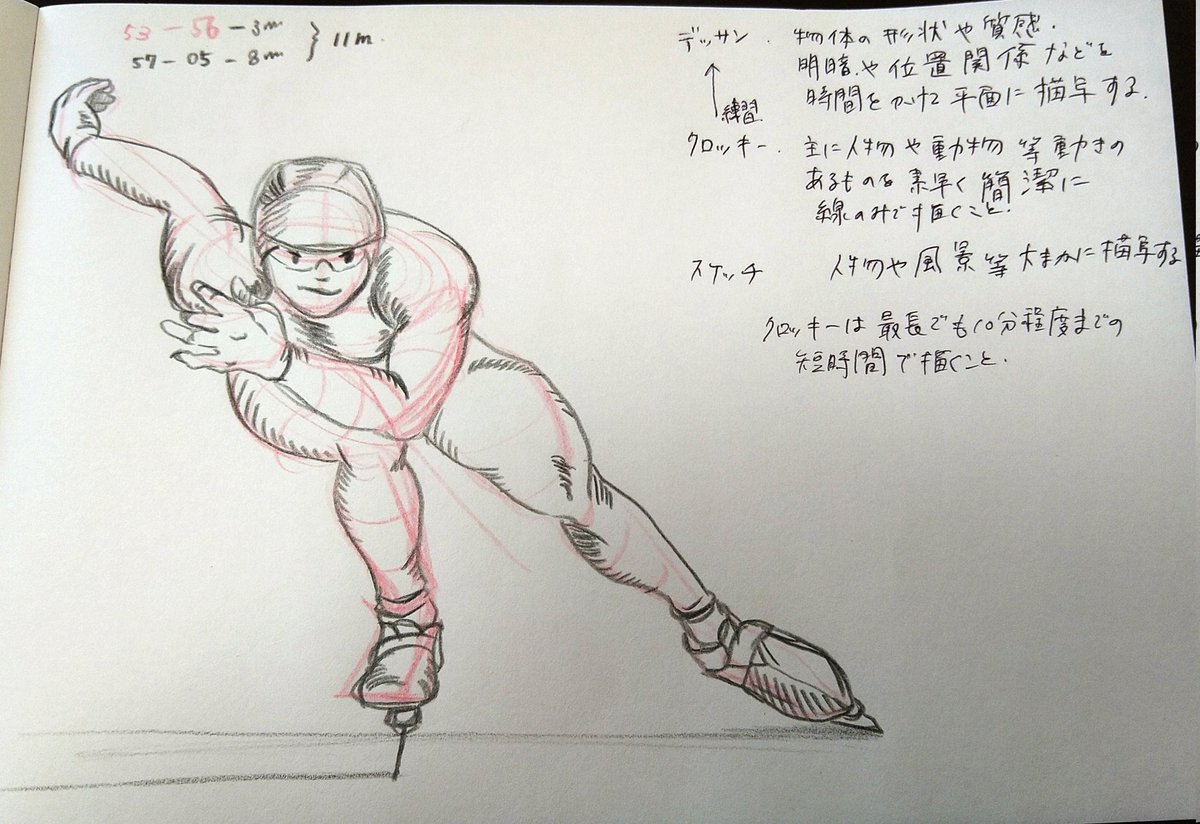 53-56-3m
57-05-8m
} 11m.
デッサン. 物体の形状や質感.
明暗.や位置関係などを
時間をかけて平面に描写する.
↑練習.
クロッキー. 主に人物や動物等動きの
あるものを素早く簡潔に
線のみで描くこと.
スケッチ 人物や風景等大まかに描写する
クロッキーは最長でも10分程度までの
短時間で描くこと.